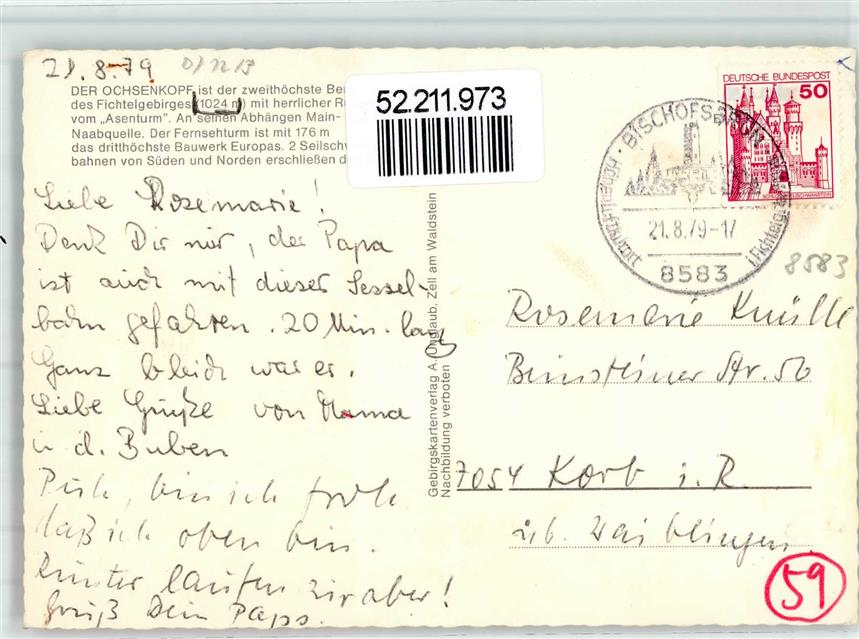 21.8.79
DER OCHSENKOPF ist der zweithöchste Be
des Fichtelgebirges (1024 m) mit herrlicher R
vom „Asenturm". An seinen Abhängen Main-
Naabquelle. Der Fernsehturm ist mit 176 m
das dritthöchste Bauwerk Europas. 2 Seilschw
bahnen von Süden und Norden erschließen d
52.211.973
DEUTSCHE BUNDESPOST
50
BISCHOFSGRÜN
Höhenluftkurort
i. Fichtelg
21.8.79-17
8583
8583
Liebe Rosemarie!
Denk Dir nur, der Papa
ist auch mit dieser Sessel-
bahn gefahren. 20 Min. lang
Ganz bleich war er.
Liebe Grüße von Mama
u d. Buben
Puh, bin ich froh
daß ich oben bin.
Runter laufen wir aber!
Gruß Dein Paps.
Gebirgskartenverlag A. Unglaub, Zell am Waldstein
Nachbildung verboten
Rosemarie Knülle
Str. 56
7054 Korb i. R.
üb. Waiblingen
59